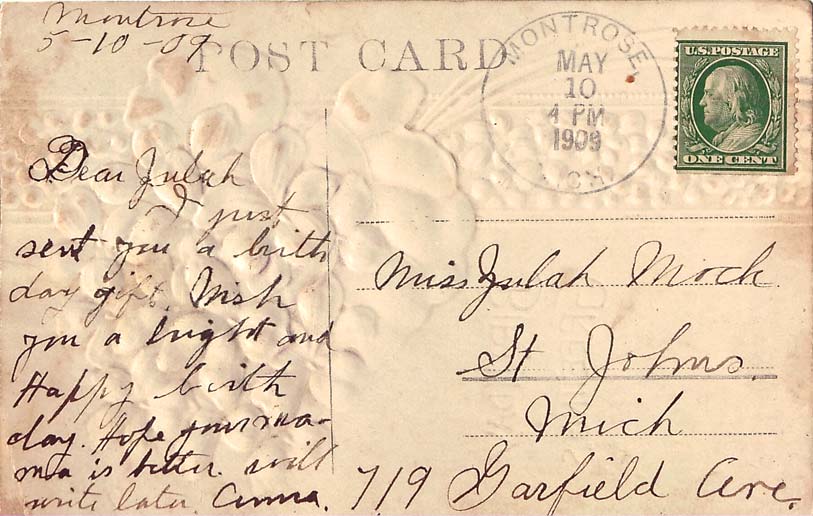 Montrose
5-10-09
POST CARD
MONTROSE,
MAY
10
4 PM
1909
MICH.
U.S. POSTAGE
ONE CENT
Dear Zulah
I just
sent you a birth
day gift. Wish
you a bright and
Happy birth
day. Hope your ma-
ma is better. will
write later. Anna.
Miss Zulah Mock
St Johns.
Mich
719 Garfield Ave.